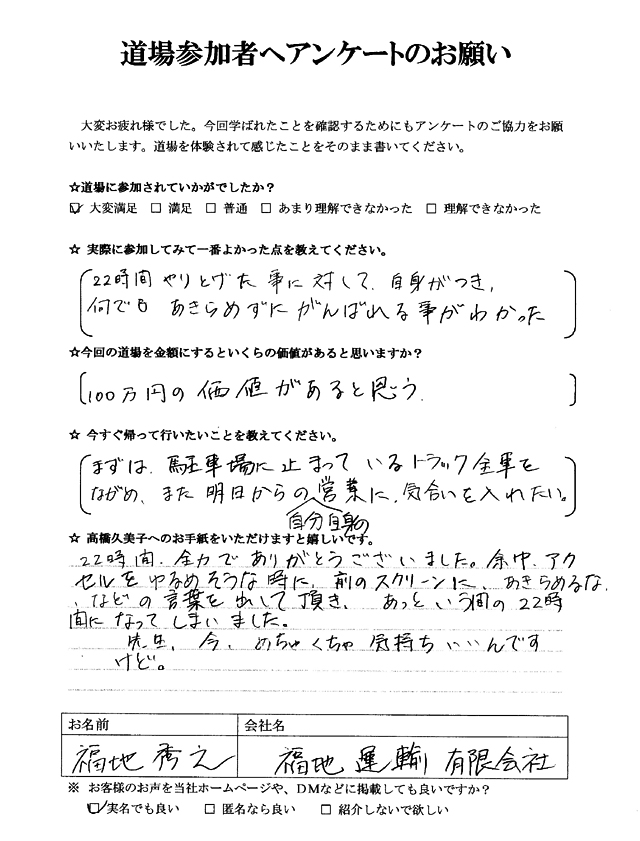 道場参加者へアンケートのお願い
大変お疲れ様でした。今回学ばれたことを確認するためにもアンケートのご協力をお願
いいたします。道場を体験されて感じたことをそのまま書いてください。
☆道場に参加されていかがでしたか？
☑ 大変満足 □ 満足 □ 普通 □ あまり理解できなかった □ 理解できなかった
☆ 実際に参加してみて一番よかった点を教えてください。
22時間 やりとげた 事に対して、自身がつき、
何でも あきらめずに がんばれる事がわかった
☆今回の道場を金額にするといくらの価値があると思いますか？
100万円の価値があると思う.
☆ 今すぐ帰って行いたいことを教えてください。
まずは、駐車場に止まっているトラック全車を
ながめ、また明日からの営業に、気合いを入れたい。
自分自身の
☆ 高橋久美子へのお手紙をいただけますと嬉しいです。
22時間、全力でありがとうございました。途中、アク
セルをゆるめそうな時に、前のスクリーンに、あきらめるな
、などの言葉を出して頂き、あっという間の22時
間になってしまいました。
先生、今、めちゃくちゃ気持ちいいんです
けど。
お名前 会社名
福地 秀之 福地運輸有限会社
※ お客様のお声を当社ホームページや、DMなどに掲載しても良いですか？
☑実名でも良い □ 匿名なら良い □ 紹介しないで欲しい